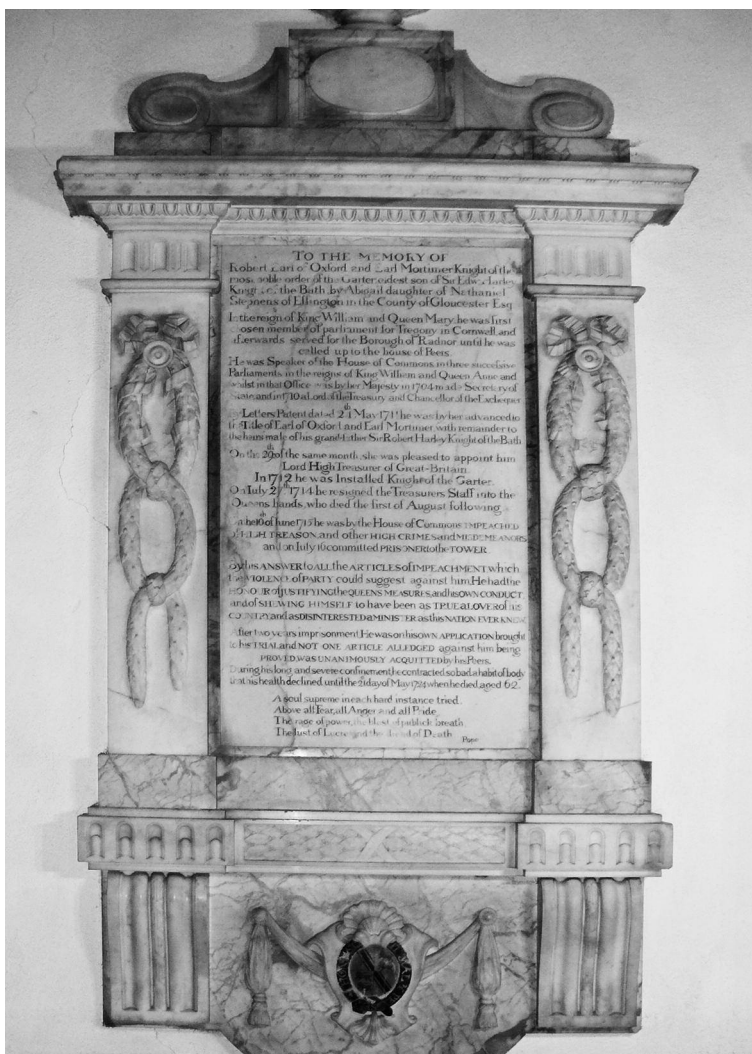 TO THE MEMORY OF
Robert Earl of Oxford and Earl Mortimer Knight of the
most noble order of the Garter eldest son of Sir Edw. Harley
Knight of the Bath by Abigail daughter of Nathaniel
Stephens of Essington in the County of Gloucester Esq
In the reign of King William and Queen Mary he was first
chosen member of parliament for Tregony in Cornwell, and
afterwards served for the Borough of Radnor until he was
called up to the house of Peers.
He was Speaker of the House of Commons in three succesive
Parliaments in the reigns of King William and Queen Anne and
whilst in that Office was by her Majesty in 1704 made Secretary of
State, and in 1710 a Lord of the Treasury and Chancellor of the Exchequer
Letters Patent dated May 171 he was by her advanced to
the Title of Earl of Oxford and Earl Mortimer with remainder to
the heirs male of his grandfather Sir Robert Harley Knight of the Bath
On the 29th of the same month she was pleased to appoint him
Lord High Treasurer of Great-Britain.
In 1712 he was Installed Knight of the Garter.
On July 27th 1714 he resigned the Treasurers Staff into the
Queens hands, who died the first of August following
the 10th of June 1715 he was by the House of Commons IMPEACHED
of HIGH TREASON, and other HIGH CRIMES and MISDEMEANORS
and on July 16 committed PRISONER to the TOWER
by his ANSWER to ALL the ARTICLES of IMPEACHMENT which
the VIOLENCE of PARTY could suggest against him. He had the
HONOUR of JUSTIFYING the QUEENS MEASURES, and his OWN CONDUCT
and of SHEWING HIMSELF to have been as TRUE a LOVER of his
COUNTRY and as DISINTERESTED a MINISTER as this NATION EVER KNEW
After two years imprisonment He was on his OWN APPLICATION brought
to his TRIAL and NOT ONE ARTICLE ALLEDGED against him being
PROVED, was UNANIMOUSLY ACQUITTED by his Peers.
During his long, and severe confinement, he contracted so bad a habit of body
that his health declined until the 21 day of May 1724 when he died aged 62.
A soul supreme in each hard instance tried
Above all Fear, all Anger and all Pride
The rage of power, the blast of publick breath
The lust of Lucre and the dread of Death
Pope